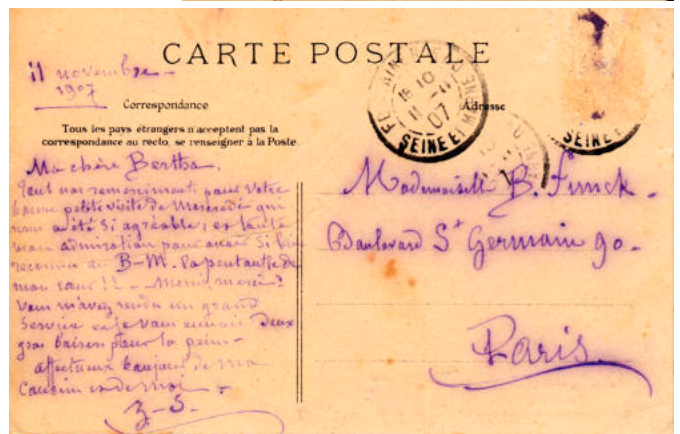 CARTE POSTALE
11 novembre
1907
Correspondance
Adresse
Tous les pays étrangers n'acceptent pas la
correspondance au recto, se renseigner à la Poste.
Ma chère Bertha,
Tout nos remerciment pour votre
bonne petite visite de Mercredi qui
nous a été si agréable, et toute
mon admiration pour avoir si bien
reconnu au B-M. la
mon cœur !! - Merci, merci!
Vous m'avez rendu un grand
Service et je vous envoie deux
gros baisers pour la peine
affectueux bonjour de ma
Cousine et de moi
3-S-
Mademoiselle B. Funck-
Boulevard St Germain 90-
Paris
18 10
11 -11
07
SEINE ET M
SEINE ET